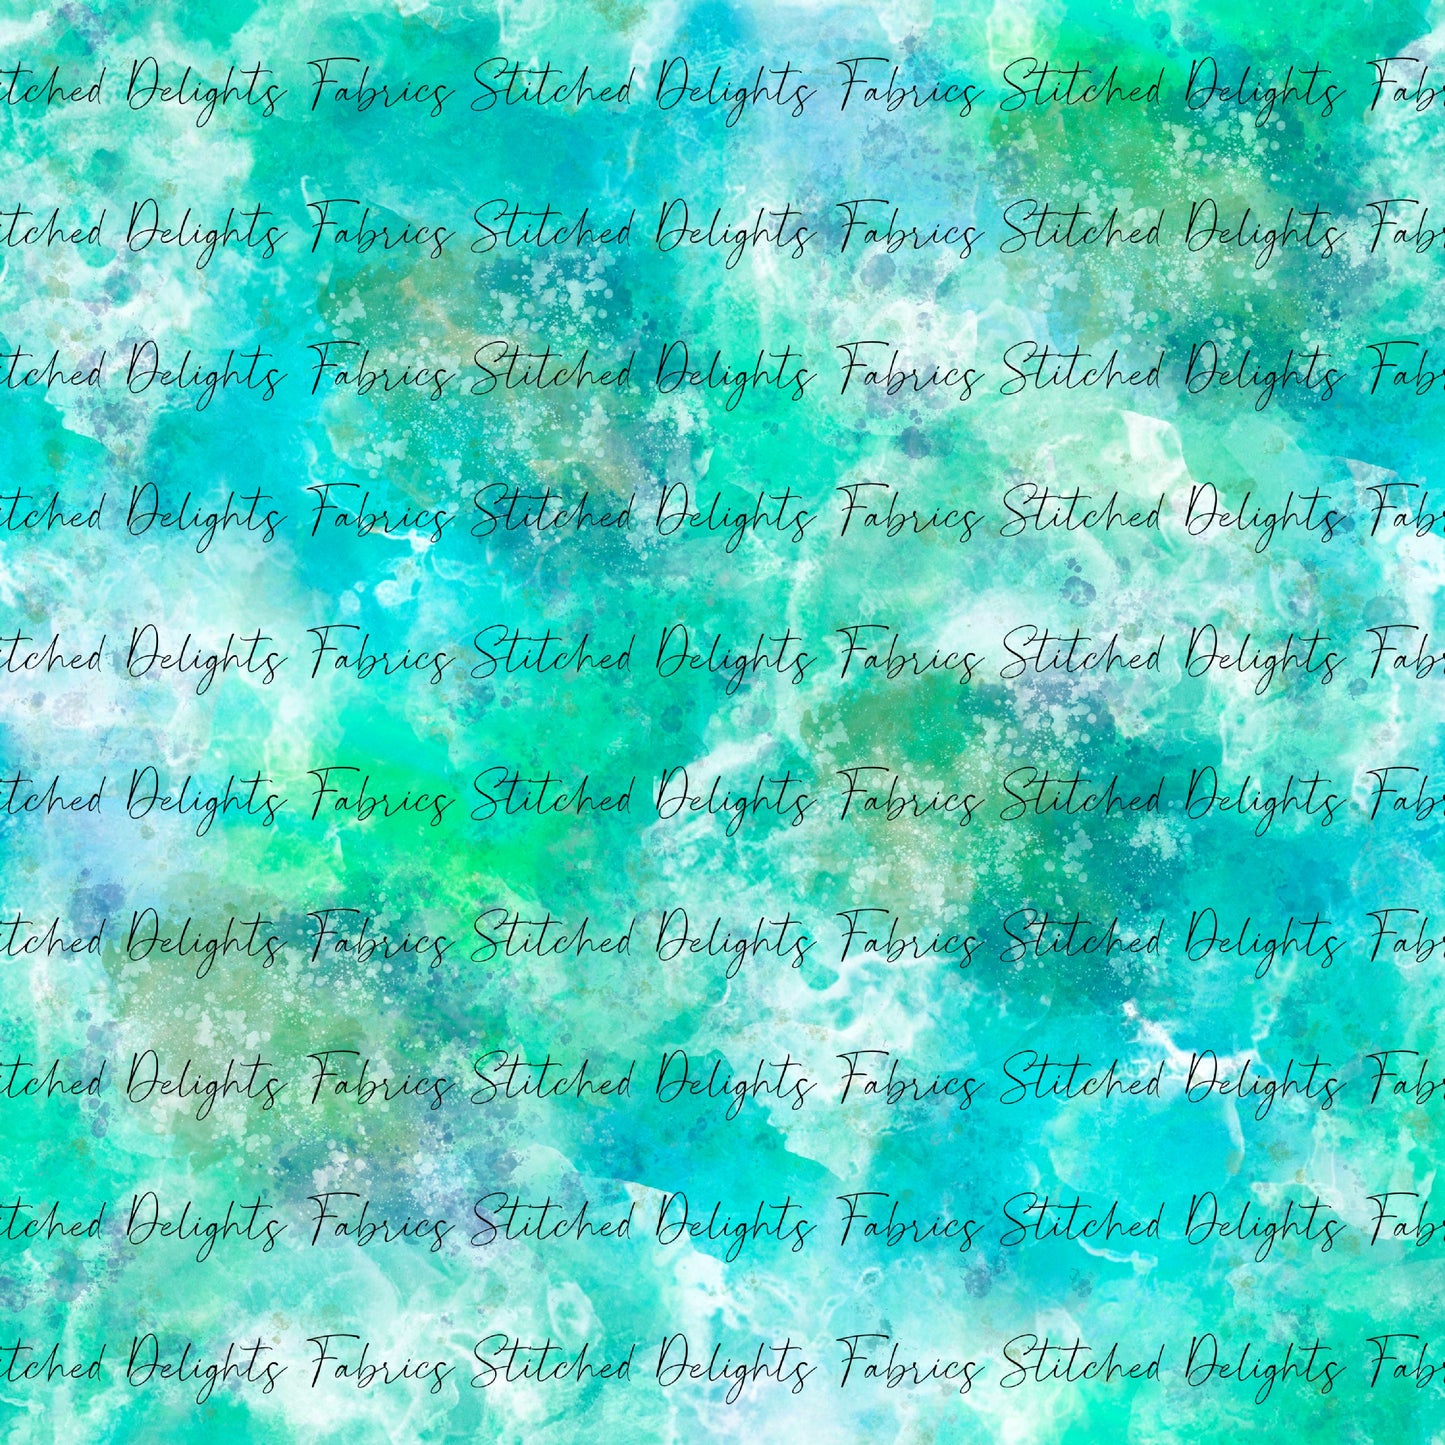 titched Delights Fabrics Stitched Delights Fabrics Stitched Delights Fabr
titched Delights Fabrics Stitched Delights Fabrics Stitched Delights Fabr
titched Delights Fabrics Stitched Delights Fabrics Stitched Delights Fabr
titched Delights Fabrics Stitched Delights Fabrics Stitched Delights Fabr
titched Delights Fabrics Stitched Delights Fabrics Stitched Delights Fabr
titched Delights Fabrics Stitched Delights Fabrics Stitched Delights Fabr
titched Delights Fabrics Stitched Delights Fabrics Stitched Delights Fabr
titched Delights Fabrics Stitched Delights Fabrics Stitched Delights Fabr
titched Delights Fabrics Stitched Delights Fabrics Stitched Delights Fabr
titched Delights Fabrics Stitched Delights Fabrics Stitched Delights Fabr